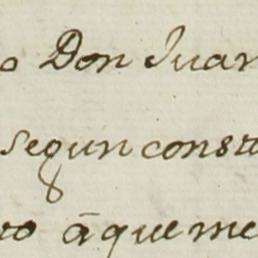 o Don Juan
segun const
to āqueme